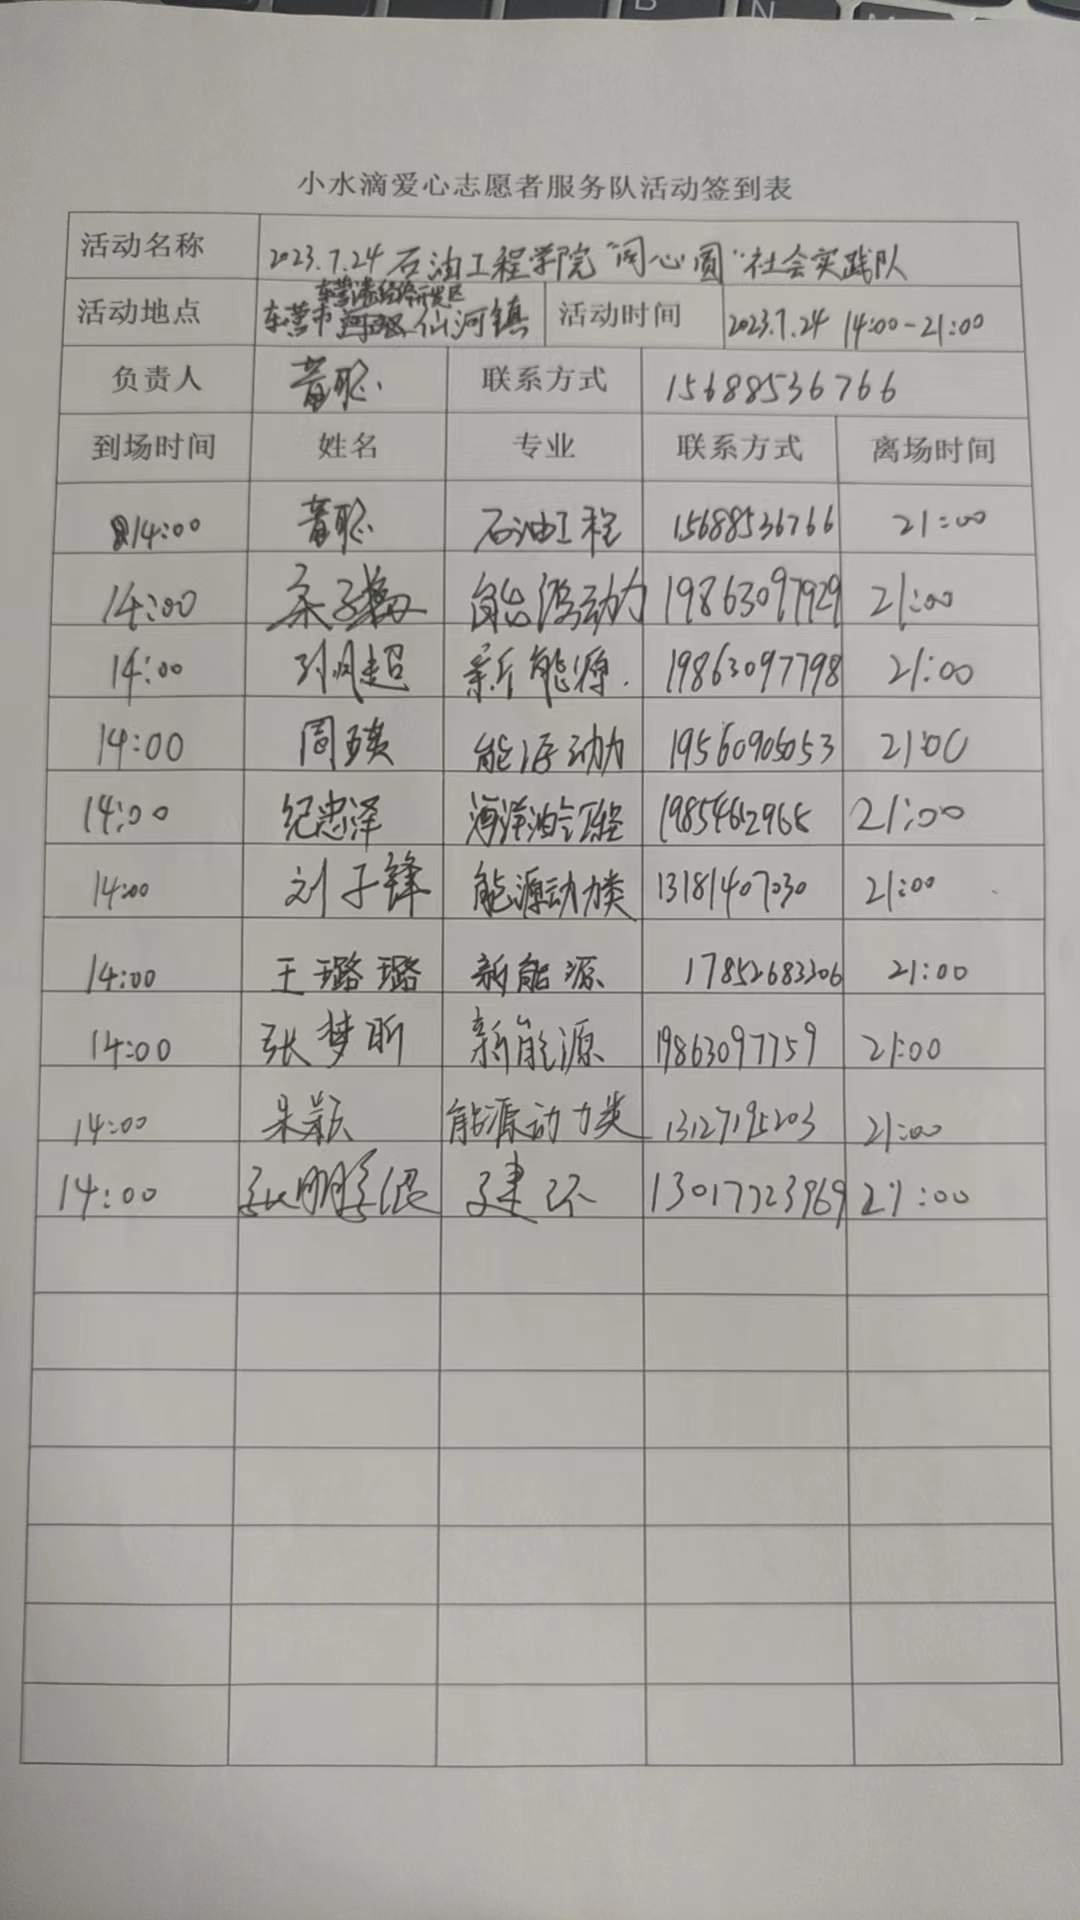 小水滴爱心志愿者服务队活动签到表
活动名称 2023.7.24 石油工程学院"同心圆"社会实践队
东营港经济开发区
活动地点 东营市 仙河镇 活动时间 2023.7.24 14:00-21:00
负责人 聪 联系方式 15688536766
到场时间 姓名 专业 联系方式 离场时间
14:00 聪 石油工程 15688536766 21:00
14:00 能源动力 19863097929 21:00
14:00 新能源 19863097798 21:00
14:00 周瑛 能源动力 19560905053 21:00
14:00 纪忠泽 海洋油气工程 21:00
14:00 刘子锋 能源动力类 13181407030 21:00
14:00 王璐璐 新能源 17852683306 21:00
14:00 张梦昕 新能源 19863097759 21:00
14:00 朱颖 能源动力类 13127195203 21:00
14:00 建环 13017723969 21:00